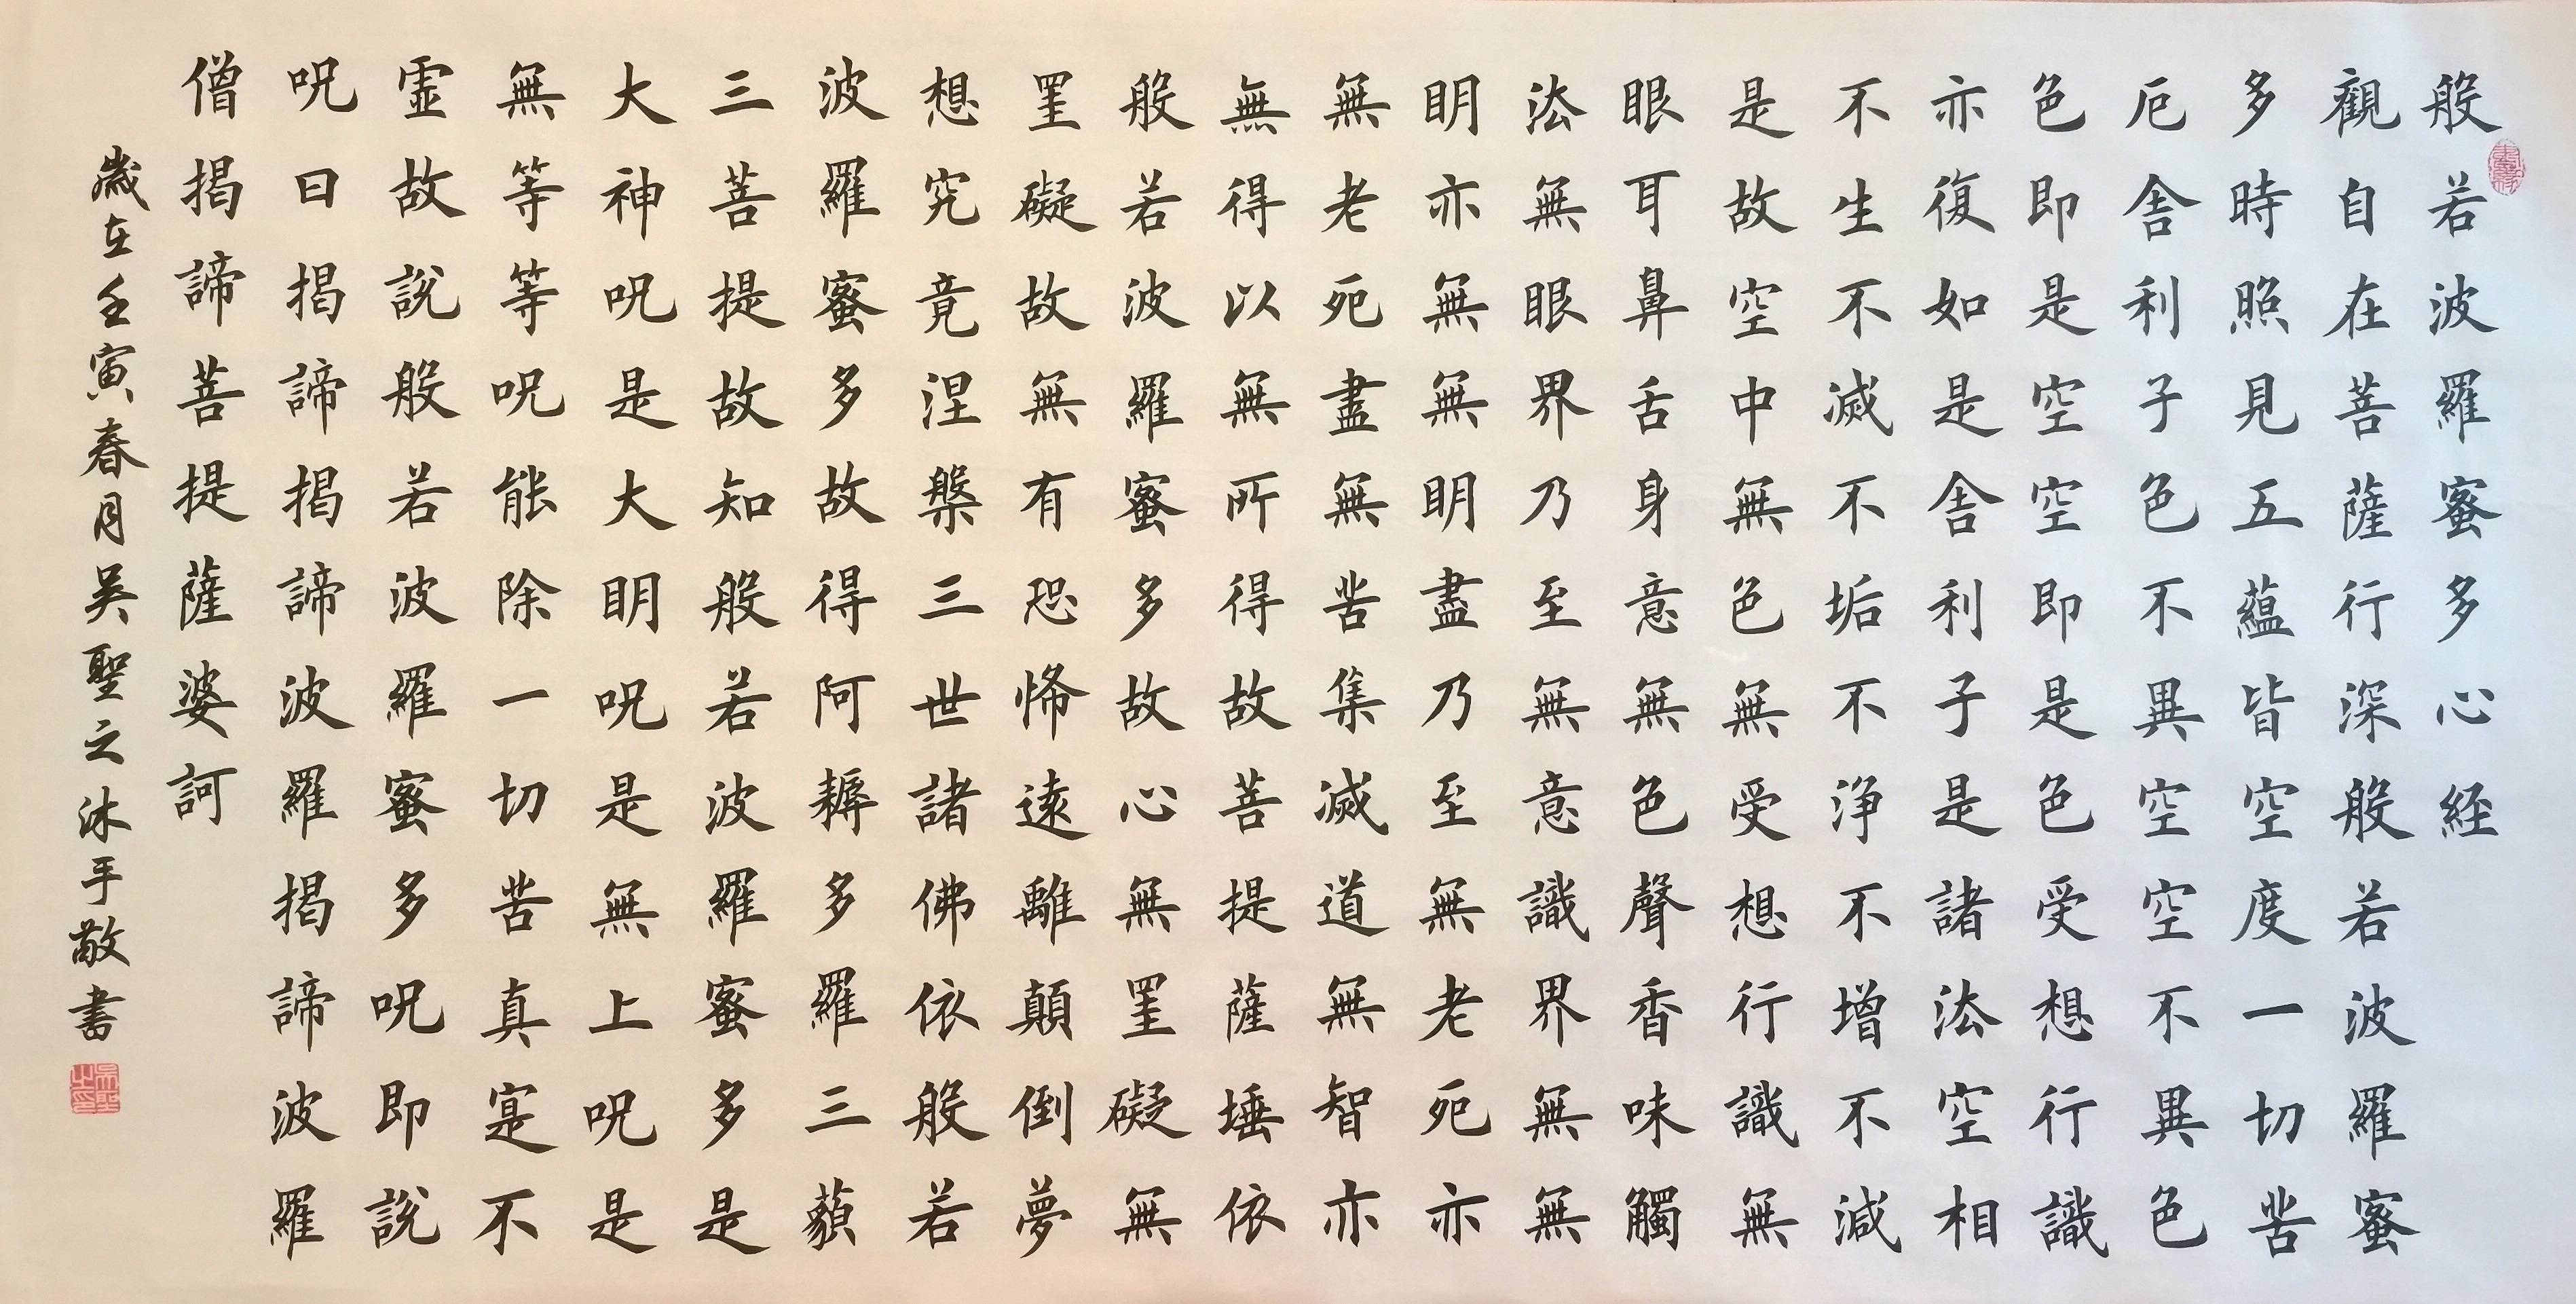 般若波羅蜜多心経
觀自在菩薩行深般若波羅蜜
多時照見五蘊皆空度一切苦
厄舍利子色不異空空不異色
色即是空空即是色受想行識
亦復如是舍利子是諸法空相
不生不滅不垢不浄不增不減
是故空中無色無受想行識無
眼耳鼻舌身意無色聲香味觸
法無眼界乃至無意識界無無
明亦無無明盡乃至無老死亦
無老死盡無苦集滅道無智亦
無得以無所得故菩提薩埵依
般若波羅蜜多故心無罣礙無
罣礙故無有恐怖遠離顛倒夢
想究竟涅槃三世諸佛依般若
波羅蜜多故得阿耨多羅三藐
三菩提故知般若波羅蜜多是
大神呪是大明呪是無上呪是
無等等呪能除一切苦真寔不
虛故說般若波羅蜜多呪即說
呪曰揭諦揭諦波羅揭諦波羅
僧揭諦菩提薩婆訶
歲在壬寅春月吳聖之沐手敬書